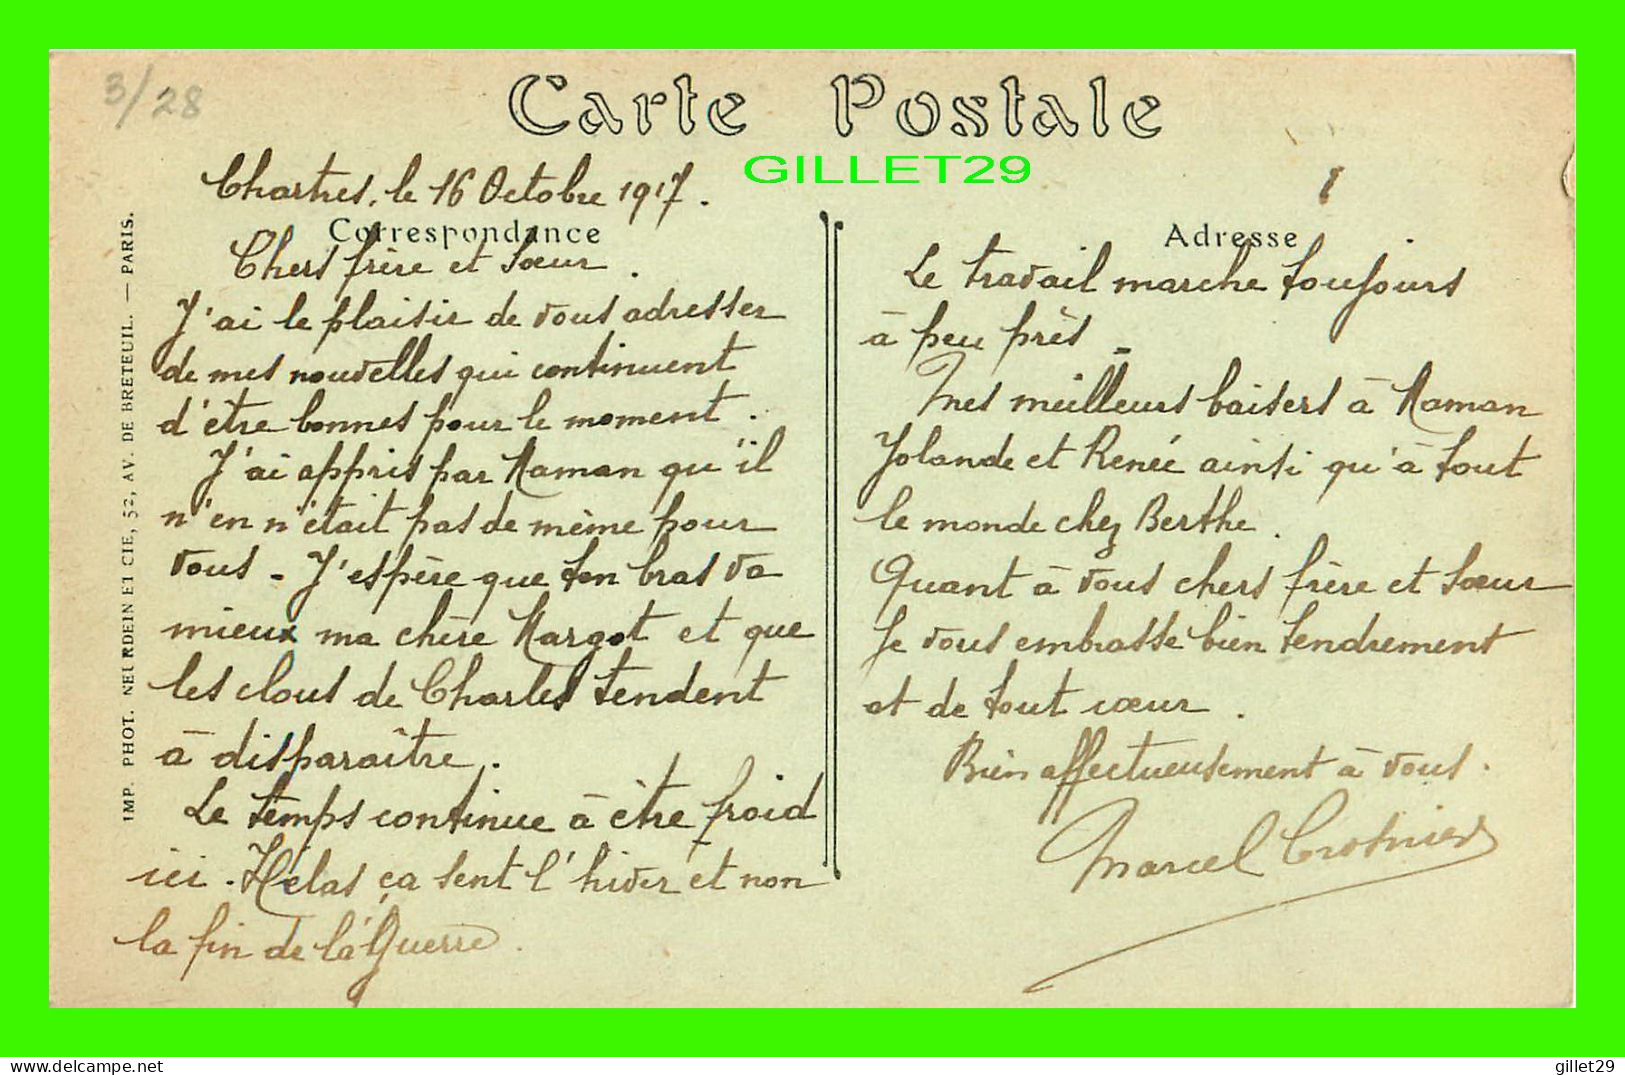 3/28
Carte Postale
GILLET29
Chartres, le 16 Octobre 1917.
Correspondance
Chers frère et Sœur.
J'ai le plaisir de vous adresser
de mes nouvelles qui continuent
d'être bonnes pour le moment.
J'ai appris par Maman qu'il
n'en n'était pas de même pour
vous - J'espère que ton bras va
mieux ma chère Margot et que
les clous de Charles tendent
à disparaître.
Le temps continue à être froid
ici. Hélas ça sent l'hiver et non
la fin de la Guerre.
Adresse
Le travail marche toujours
à peu près -
Mes meilleurs baisers à Maman
Yolande et Renée ainsi qu'à tout
le monde chez Berthe.
Quant à vous chers frère et Sœur
Je vous embrasse bien tendrement
et de tout cœur.
Bien affectueusement à vous.
Marcel
IMP. PHOT. NEURDEIN ET CIE, 52, AV. DE BRETEUIL. — PARIS.
gillet29